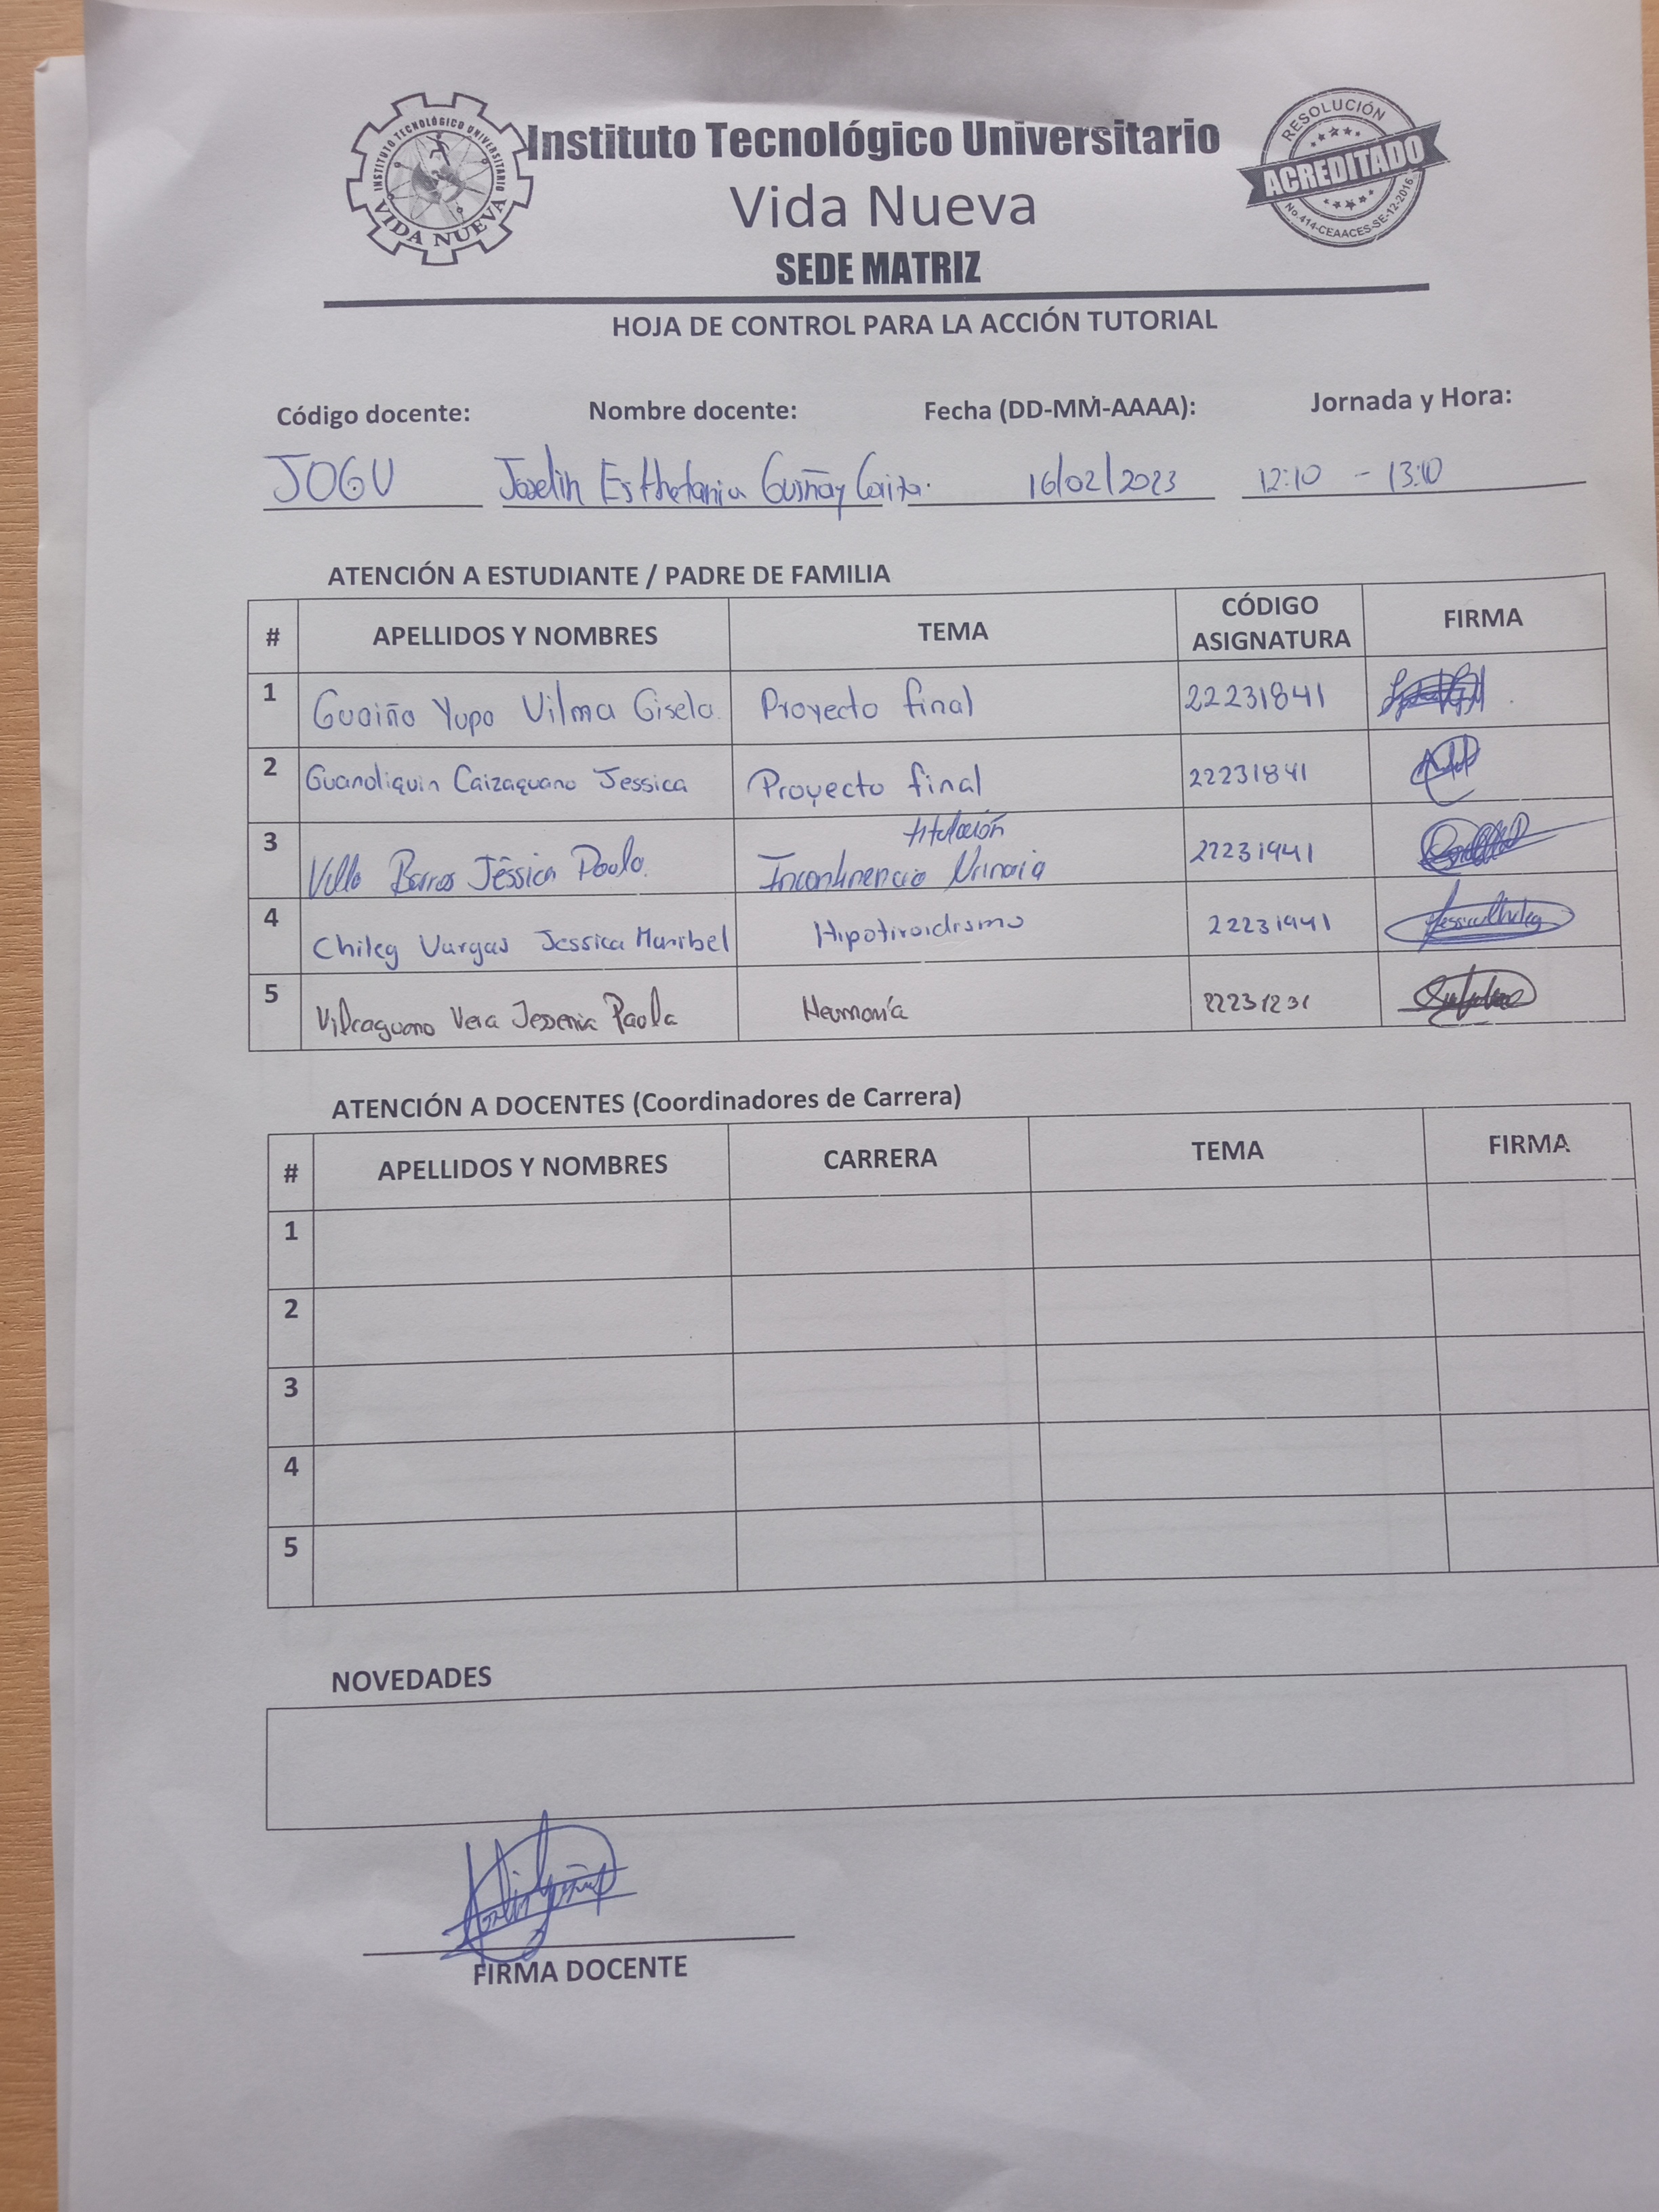 INSTITUTO TECNOLÓGICO UNIVERSITARIO
VIDA NUEVA
Instituto Tecnológico Universitario
Vida Nueva
SEDE MATRIZ
RESOLUCIÓN
ACREDITADO
No.414-CEAACES-SE-12-2016
HOJA DE CONTROL PARA LA ACCIÓN TUTORIAL
Código docente: Nombre docente: Fecha (DD-MM-AAAA): Jornada y Hora:
JOGU Joselin Esthefania Guiñay 16/02/2023 12:10 - 13:10
ATENCIÓN A ESTUDIANTE / PADRE DE FAMILIA
# APELLIDOS Y NOMBRES TEMA CÓDIGO ASIGNATURA FIRMA
1 Guaiña Yupa Vilma Gisela Proyecto final 22231841
2 Guanoliquin Caizaguano Jessica Proyecto final 22231841
3 Villa Barros Jéssica Paola. titulación Incontinencia Urinaria 22231941
4 Chileg Vargas Jessica Maribel Hipotiroidismo 22231941
5 Vilcaguano Vera Jessenia Paola Neumonía 22231231
ATENCIÓN A DOCENTES (Coordinadores de Carrera)
# APELLIDOS Y NOMBRES CARRERA TEMA FIRMA
1
2
3
4
5
NOVEDADES
FIRMA DOCENTE